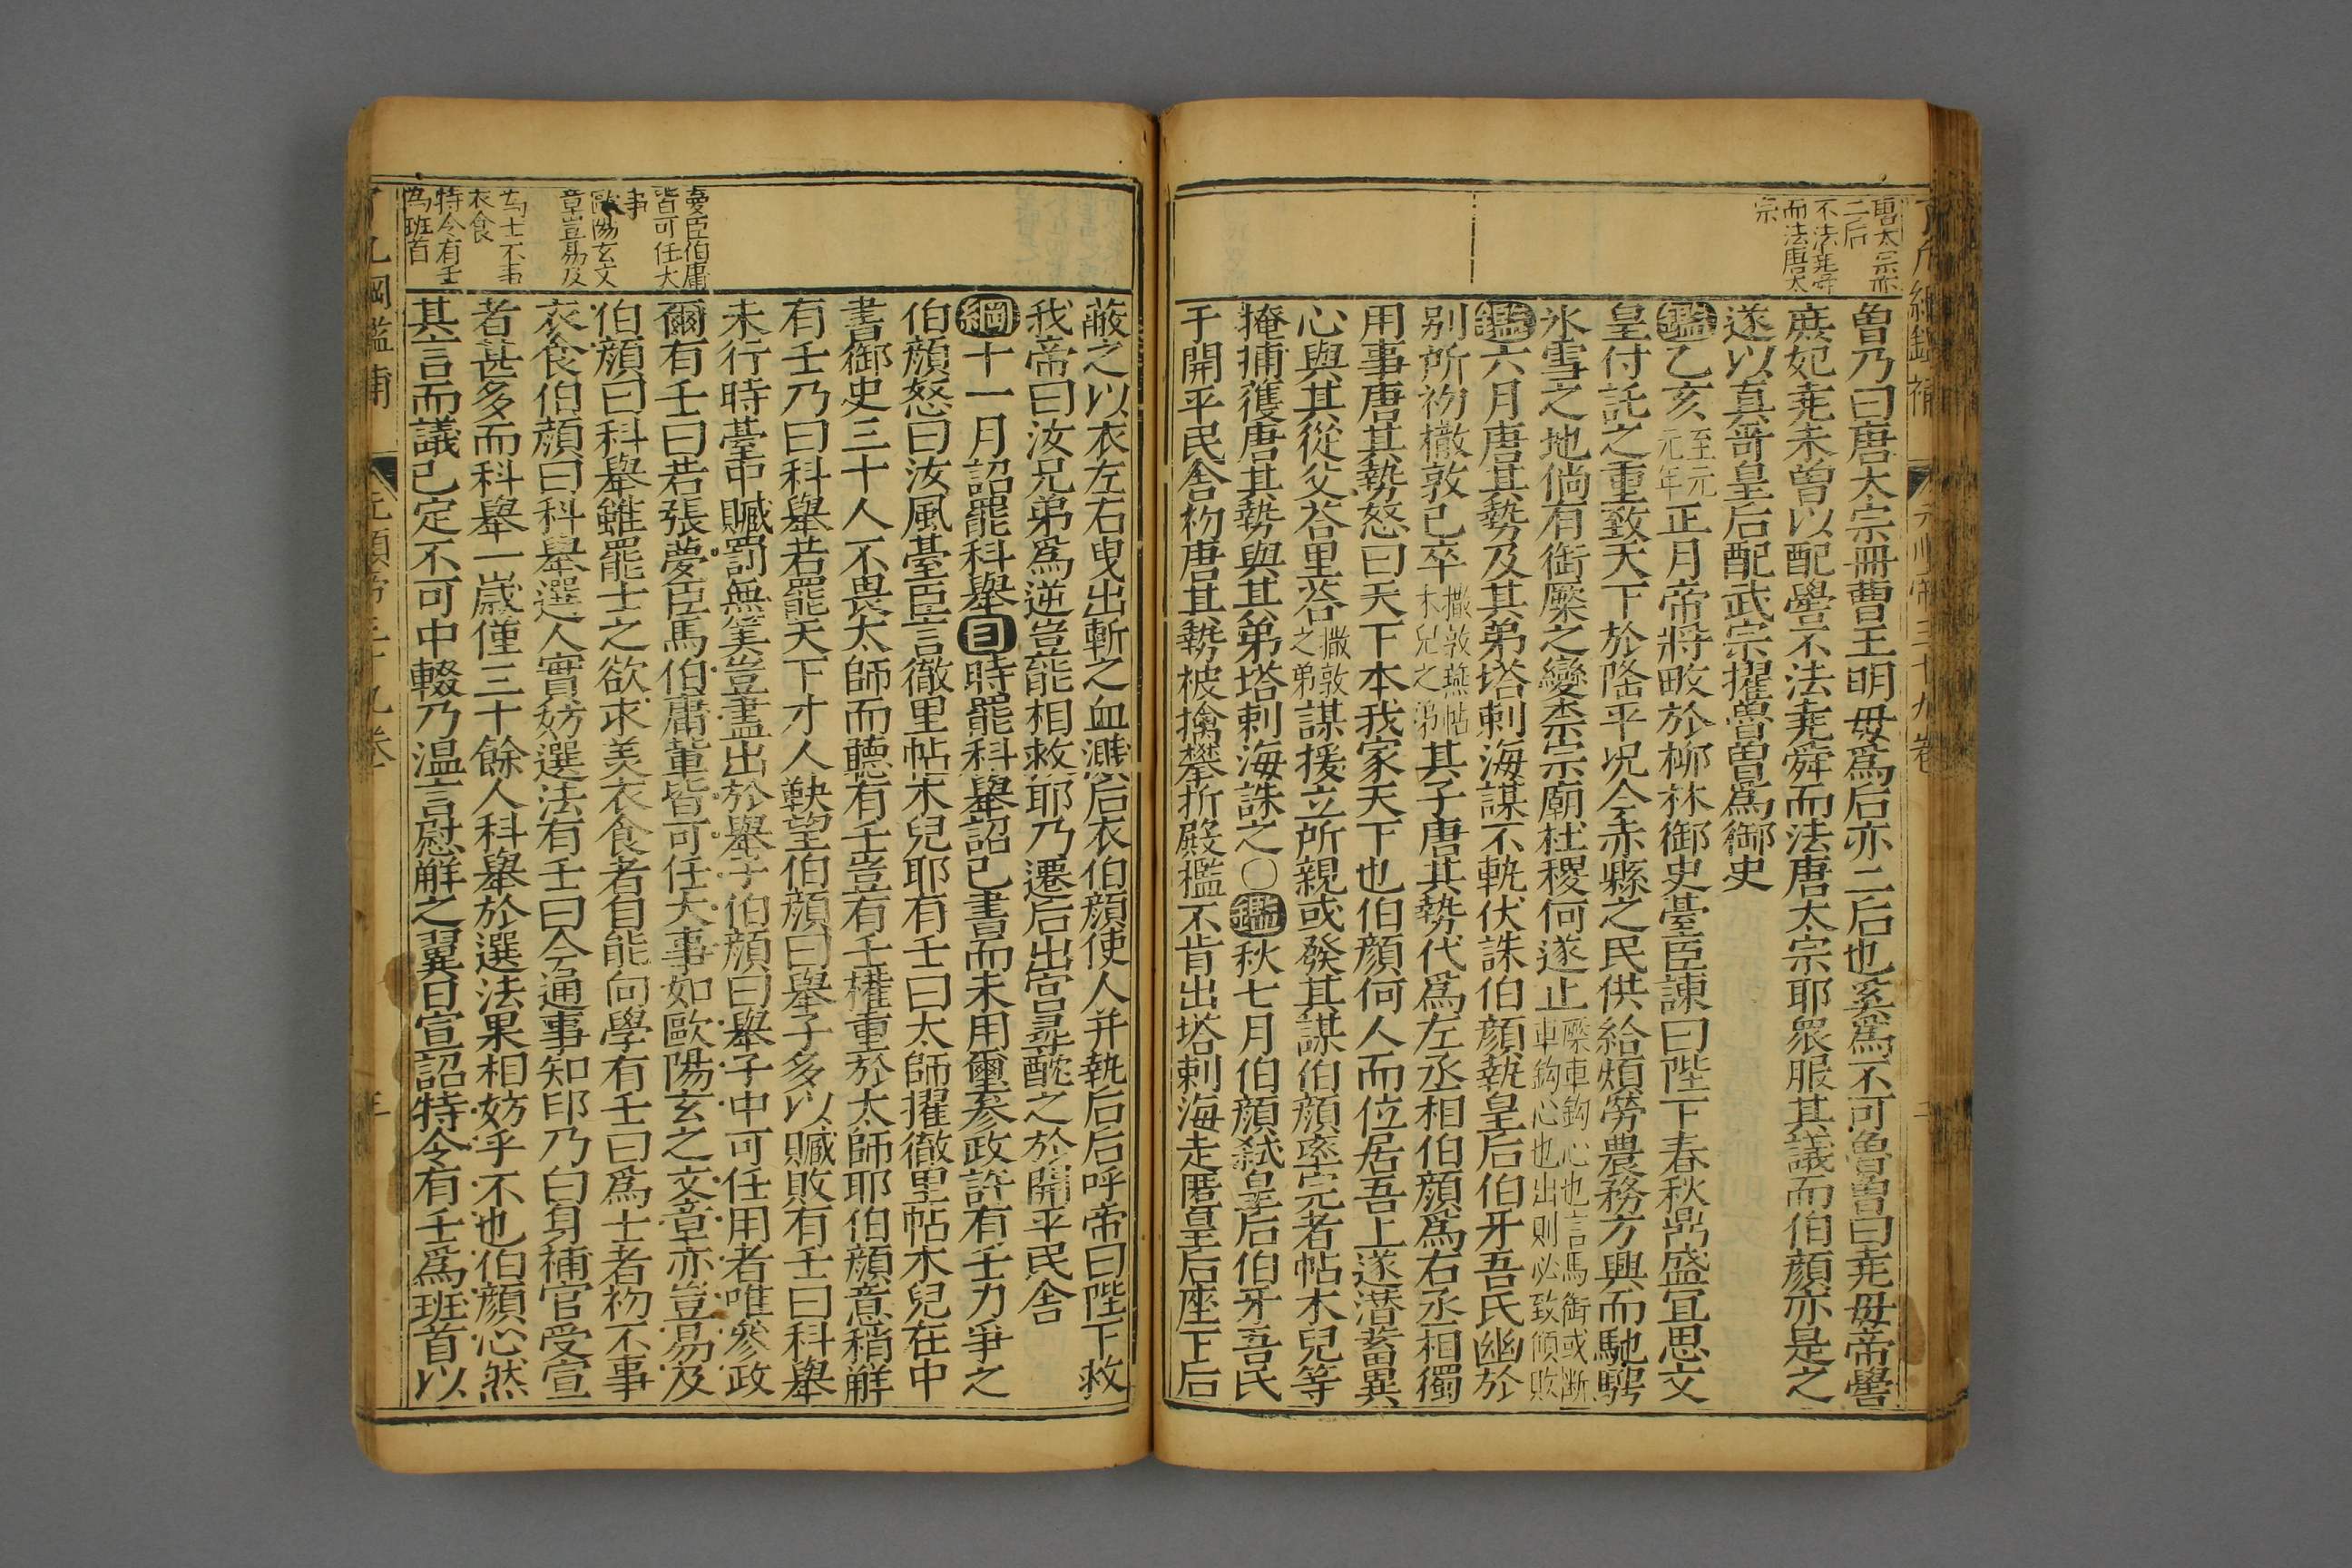 唐太宗亦
二后
不法堯舜
而法唐太
宗
曽乃曰唐太宗冊曹王明毋爲后亦二后也奚爲不可魯曽曰堯毋帝嚳
庶妃堯未曽以配嚳不法堯舜而法唐太宗耶眾服其議而伯顏亦是之
遂以真哥皇后配武宗擢魯曽爲御史
鑑乙亥至元元年正月帝將畋於柳林御史臺臣諫曰陛下春秋鼎盛宜思文
皇付託之重致天下於隆平况今赤縣之民供給煩勞農務方興而馳騁
氷雪之地倘有銜橜之變柰宗廟社稷何遂止橜車鈎心也言馬銜或断車鈎心也出則必致傾敗
鑑六月唐其勢及其弟塔剌海謀不軌伏誅伯顏執皇后伯牙吾氏幽於
别所初撒敦已卒撒敦燕帖木兒之弟其子唐其勢代爲左丞相伯顏爲右丞相獨
用事唐其勢怒曰天下本我家天下也伯顏何人而位居吾上遂潜蓄異
心與其從父荅里荅撒敦之弟謀援立所親或發其謀伯顏率完者帖木兒等
掩捕獲唐其勢與其弟塔剌海誅之○鑑秋七月伯顏弑皇后伯牙吾氏
于開平民舍初唐其勢被擒攀折殿檻不肯出塔剌海走匿皇后座下后
蔽之以衣左右曳出斬之血濺后衣伯顏使人并執后后呼帝曰陛下救
我帝曰汝兄弟爲逆豈能相救耶乃遷后出宮尋酖之於開平民舍
綱十一月詔罷科舉目時罷科舉詔已書而未用璽參政許有壬力爭之
伯顏怒曰汝風臺臣言徹里帖木兒耶有壬曰太師擢徹里帖木兒在中
書御史三十人不畏太師而聽有壬豈有壬權重於太師耶伯顏意稍解
有壬乃曰科舉若罷天下才人觖望伯顏曰舉子多以贓敗有壬曰科舉
未行時臺中贓罰無筭豈盡出於舉子伯顏曰舉子中可任用者唯參政
爾有壬曰若張夢臣馬伯庸輩皆可任大事如歐陽玄之文章亦豈易及
伯顏曰科舉雖罷士之欲求美衣食者自能向學有壬曰爲士者初不事
衣食伯顏曰科舉選人實妨選法有壬曰今通事知印乃白身補官受宣
者甚多而科舉一歲僅三十餘人科舉於選法果相妨乎不也伯顏心然
其言而議已定不可中輟乃温言慰解之翼日宣詔特令有壬爲班首以
夢臣伯庸
皆可任大
事
歐陽玄文
章豈易及
为士不事
衣食
特令有壬
为班首